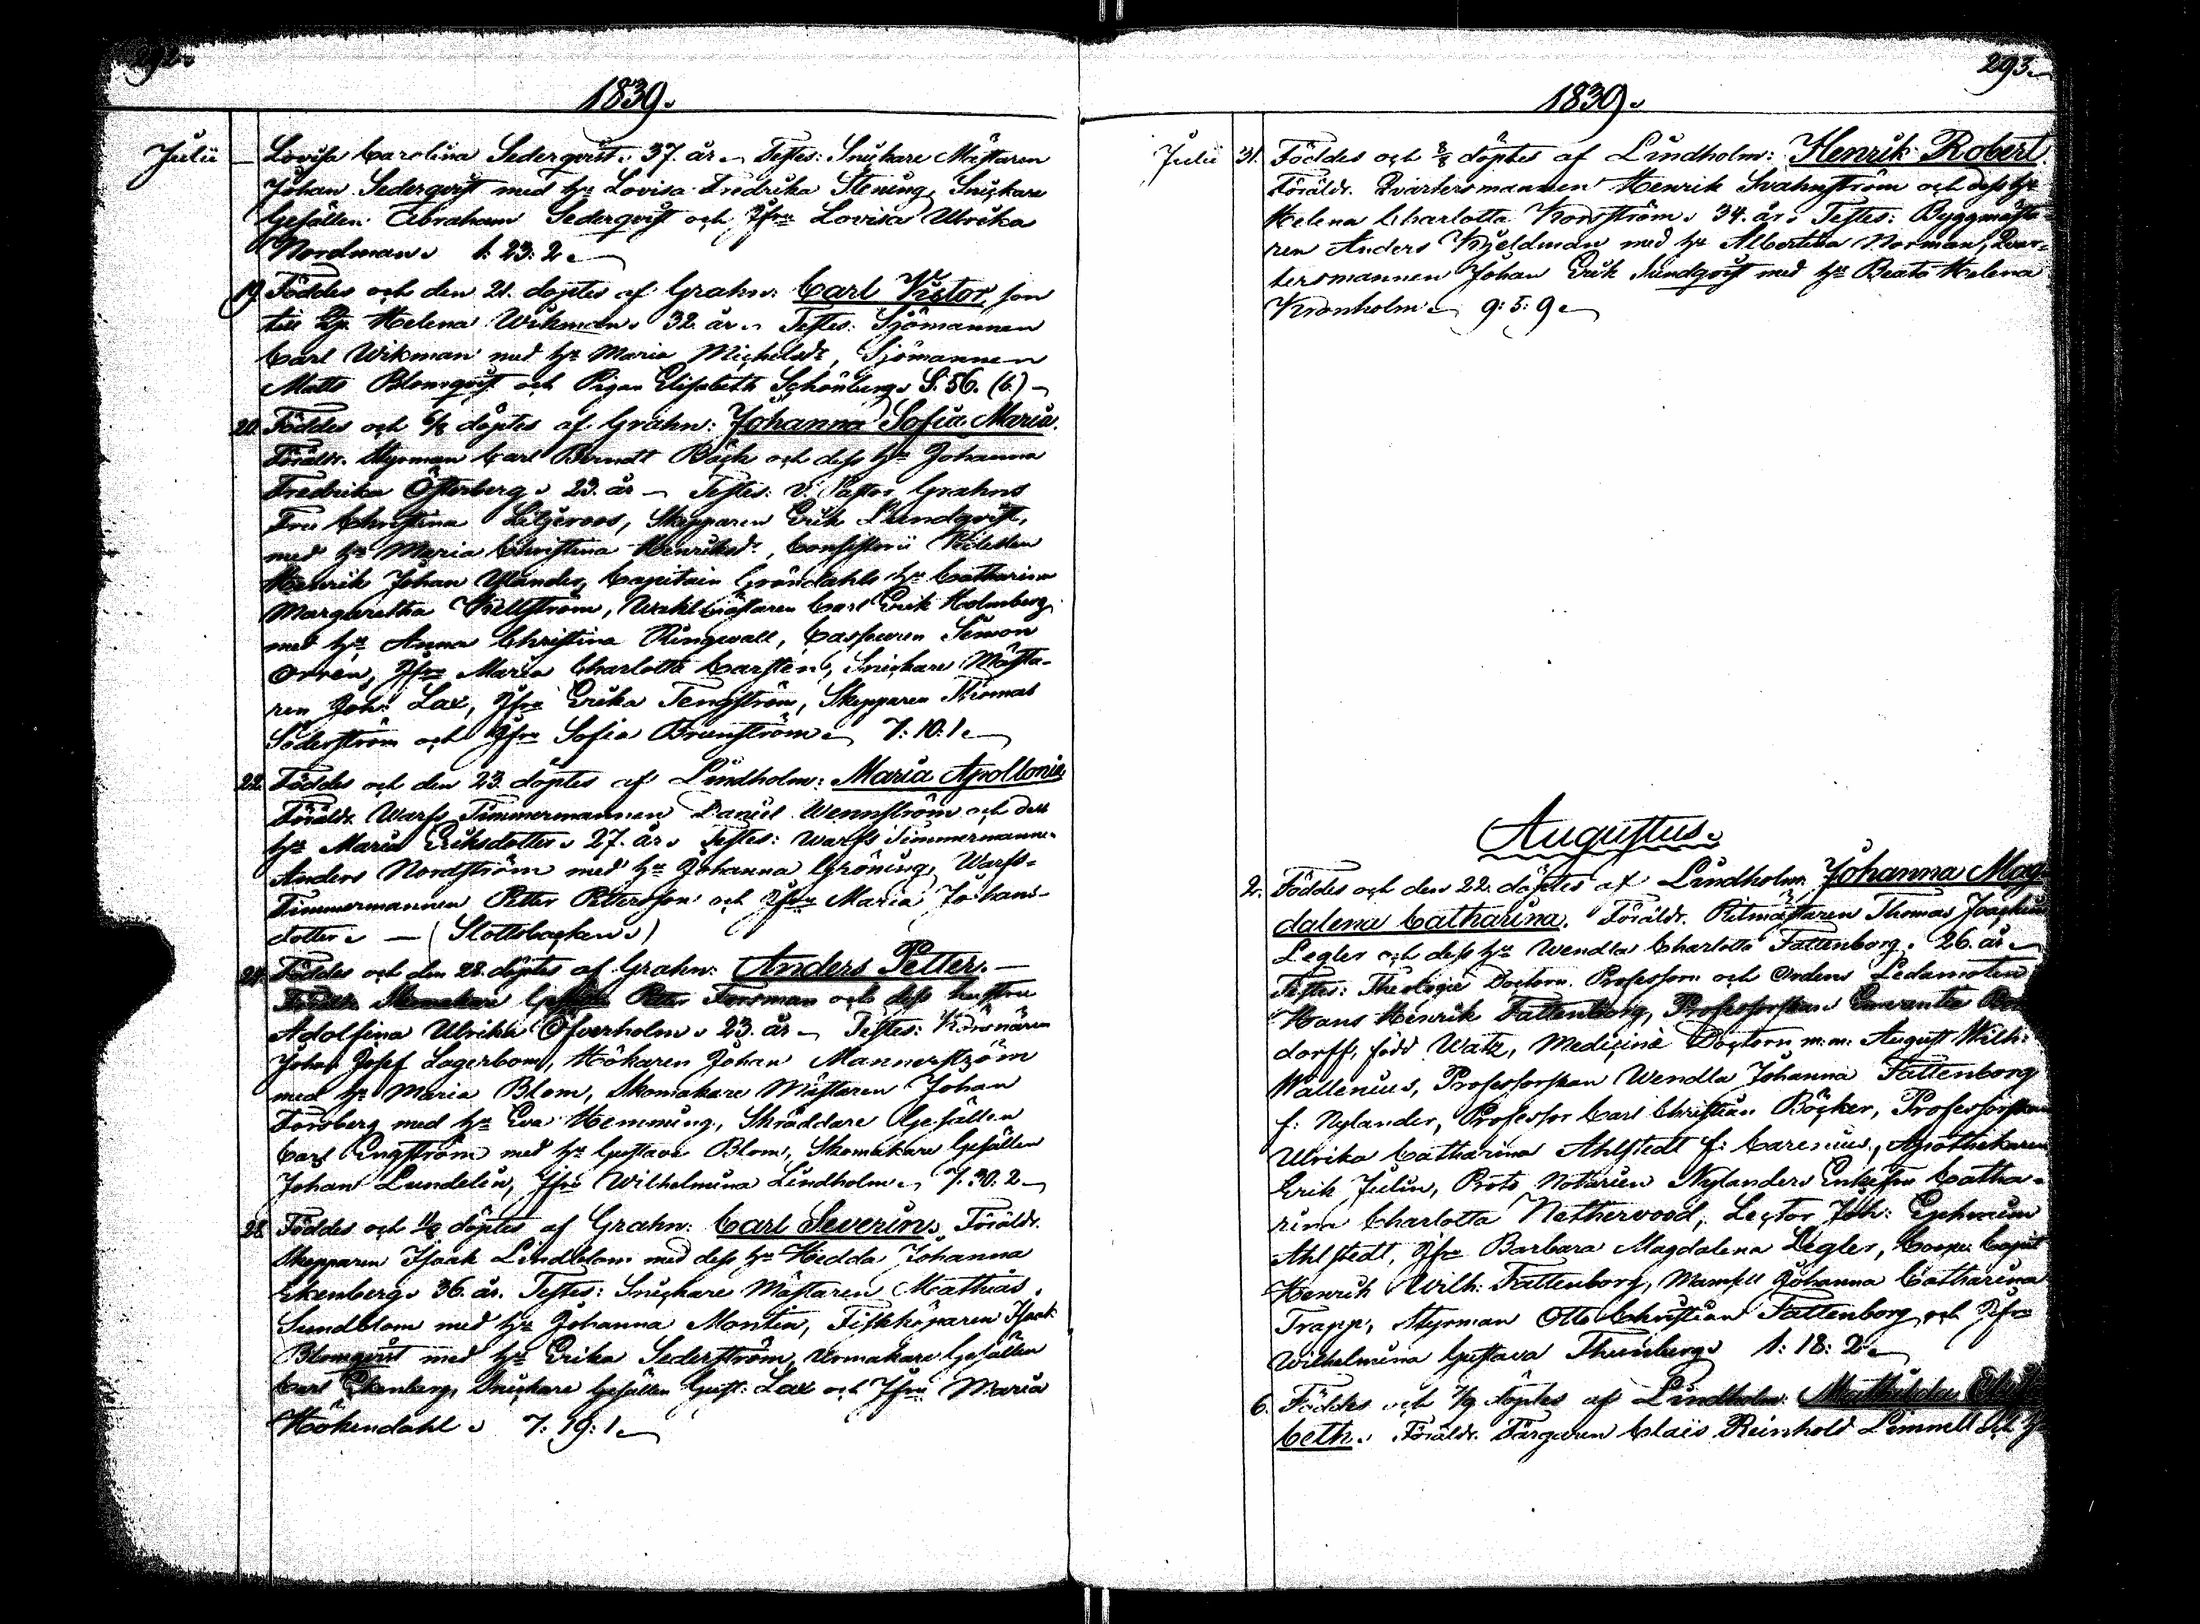 292.
1839.
Julii — Lovisa Carolina Sederqvist. 37. år. Testes: Snickare Mästaren
Johan Sederqvist med hu Lovisa Fredrika Stening, Snickare
Gesällen Abraham Sederqvist och Jfru Lovisa Ulrika
Nordman. 1: 23: 2.
19. Föddes och den 21. döptes af Grahn: Carl Victor, son
till Helena Wikman. 32. år. Testes: Sjömannen
Carl Wikman med hu Maria Michelsdr, Sjömannen
Matts Blomqvist och Pigan Elisabeth Schönberg. S. 56. (b.) —
20. Föddes och döptes af Grahn: Johanna Sofia Maria.
Föräldr. Styrman Carl Berndt Bäck och dess hu Johanna
Fredrika Österberg. 23. år — Testes: v. Pastor Grahns
Fru Christina Liljeroos, Skepparen Erik Lundqvist,
med hu Maria Christina Henriksdr, Consistorii
Henrik Johan Ylander, Capitain Gröndahls hu Catharina
Margaretha Kellström, Carl Erik Holmberg
med hu Anna Christina Ringwall, Casseuren Simon
Orrén, Jfru Maria Charlotta Carstén, Snickare Mästa-
ren Joh: Lax, Jfru Erika Tengström, Skepparen Thomas
Söderström och Jfru Sofia Brunström. 7: 10: 1.
22. Föddes och den 23. döptes af Lindholm: Maria Apollonia
Föräldr. Warfs Timmermannen Daniel Wennström och dess
hu Maria Eriksdotter. 27. år. Testes: Warfs Timmermannen
Anders Nordström med hu Johanna Gröning, Warfs-
Timmermannen Petter Pettersson och Jfru Maria Johans-
dotter. — (Slottsbacken.)
24. Föddes och den 28. döptes af Grahn: Anders Petter. —
Föräldr. Skomakare Gesällen Petter Forsman och dess hustru
Adolfina Ulrika Öfverholm. 23. år — Testes: Körsnären
Johan Josef Lagerbom, Hökaren Johan Mannerström
med hu Maria Blom, Skomakare Mästaren Johan
Forsberg med hu Eva Hemming, Skräddare Gesällen
Carl Engström med hu Gustava Blom, Skomakare Gesällen
Johan Lundelin, Jfru Wilhelmina Lindholm. 7. 30. 2 —
28. Föddes och döptes af Grahn: Carl Severin. Föräldr.
Skepparen Isaak Lindblom med dess hu Hedda Johanna
Ekenberg. 36. år. Testes: Snickare Mästaren Mathias
Sundblom med hu Johanna Montin, Fiskköparen Isaak
Blomqvist med hu Erika Sederström, Urmakare Gesällen
Carl Ekenberg, Snickare Gesällen Gust: Lax och Jfru Maria
Hökendahl. 7: 19: 1.
293.
1839.
Julii 31. Föddes och 8/8 döptes af Lindholm: Henrik Robert.
Föräldr. Qvartersmannen Henrik Svahnström och dess hu
Helena Charlotta Korsström. 34. år. Testes: Byggmästa-
ren Anders Kjeldman med hu Albertina Norman, Qvar-
tersmannen Johan Erik Sundqvist med hu Beata Helena
Kronholm. 9: 5: 9.
Augustus.
2. Föddes och den 22. döptes af Lindholm: Johanna Mag
dalena Catharina. Föräldr. Ritmästaren Thomas Joachim
Legler och dess hu Wendla Charlotta Fattenborg. 26. år.
Testes: Theologiæ Doctorn, Professorn och Ordens Ledamoten
Hans Henrik Fattenborg, Professorskan
dorff, född Watz, Medicinæ Doctorn m.m. August Wilh:
Wallenius, Professorskan Wendla Johanna Fattenborg
f: Nylander, Professor Carl Christian Böcker, Professorskan
Ulrika Catharina Ahlstedt f: Carenius, Apothekaren
Erik Julin, Proto Notarien Nylanders Enkefru Catha-
rina Charlotta Netherwood, Lector Joh: Ephraim
Ahlstedt, Jfru Barbara Magdalena Legler, Coop: Capit
Henrik Wilh: Fattenborg, Mamsell Johanna Catharina
Trapp, Styrman Otto Christian Fattenborg och Jfru
Wilhelmina Gustava Thunberg. 1: 18: 2.
6. Föddes och 1/9 döptes af Lindholm: Mathilda Elisa
beth. Föräldr. Färgaren Claës Reinhold Limnell